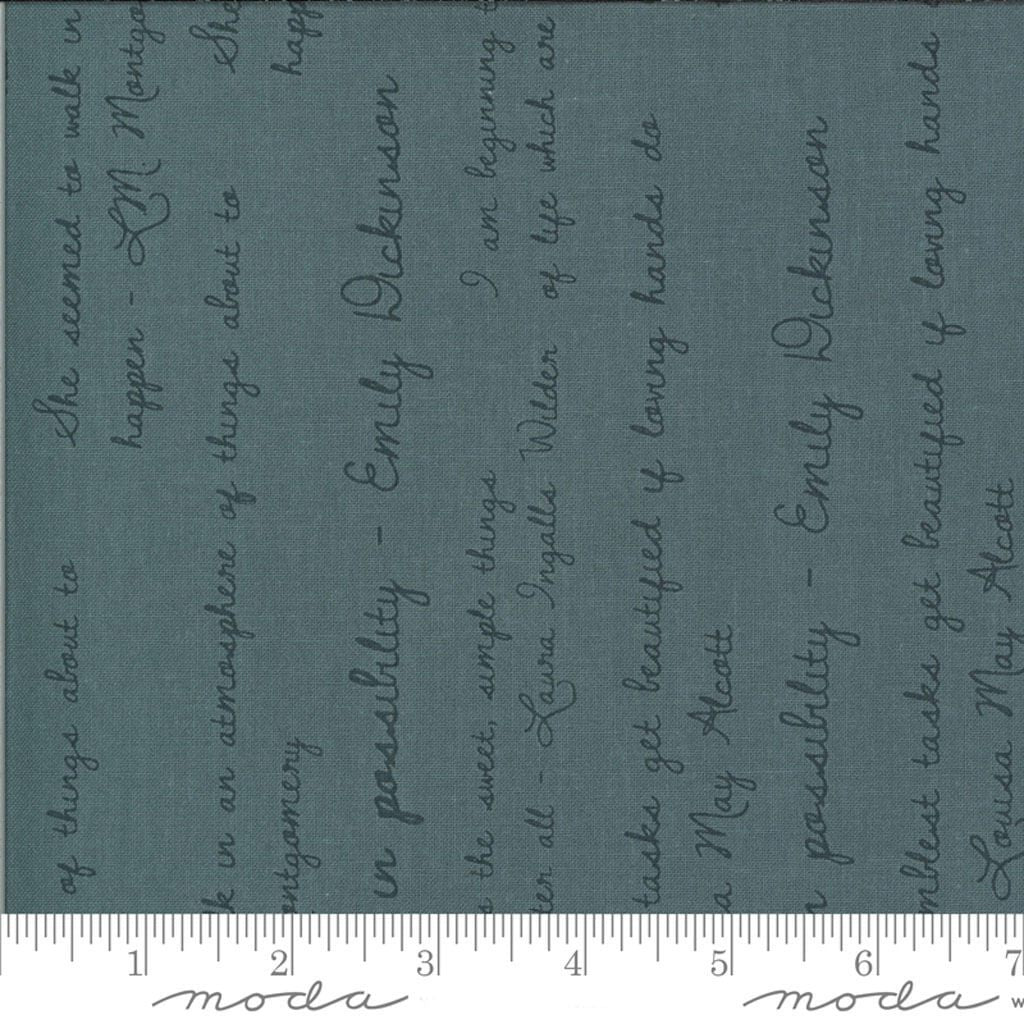 of things about to She seemed to walk in
happen - L.M. Montgo
k in an atmosphere of things about to She
ontgomery happ
in possibility - Emily Dickinson
s the sweet, simple things I am beginning t
ter all - Laura Ingalls Wilder of life which are
tasks get beautified if loving hands do
a May Alcott
n possibility - Emily Dickinson
mblest tasks get beautified if loving hands
Louisa May Alcott
1 2 3 4 5 6 7
moda moda w